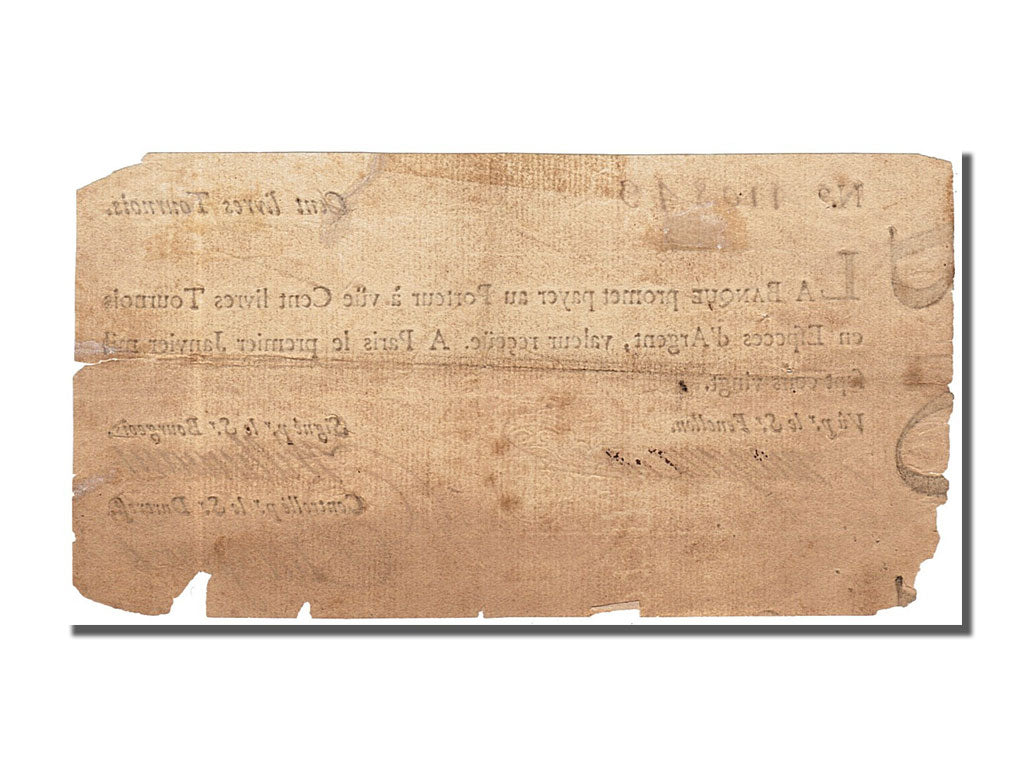 N.º 1103849 Cent livres Tournois.
LA BANQUE promet payer au Porteur à vûe Cent livres Tournois
en Especes d'Argent, valeur reçeüe. A Paris le premier Janvier mil
sept cens vingt.
Vû p.r le S.r Fenellon. Signé p.r le S.r Bourgeois.
Controllé p.r le S.r Durevest.